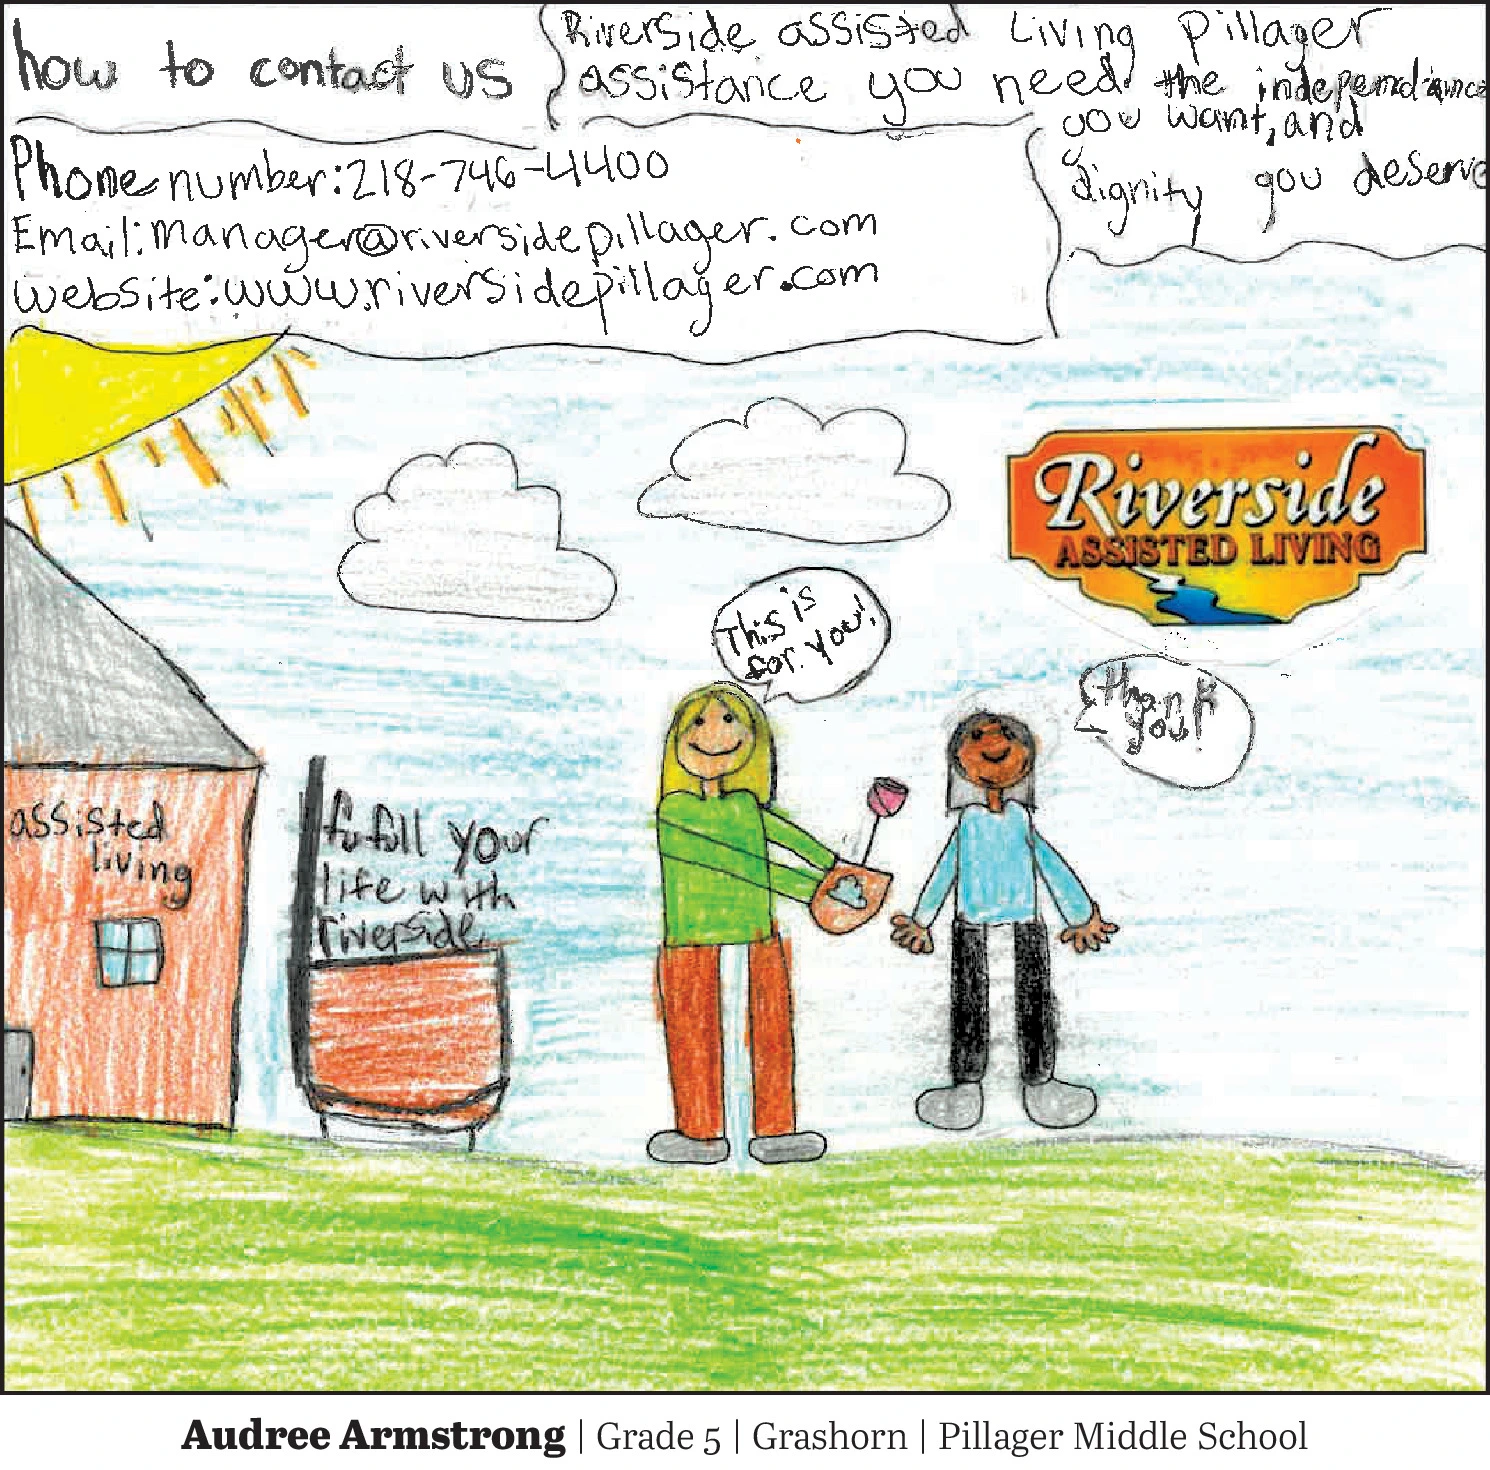 how to contact us
Riverside assisted Living Pillager
assistance you need the independance
you want, and
dignity you deserve
Phone number: 218-746-4400
Email: manager@riversidepillager.com
website: www.riversidepillager.com
Riverside
ASSISTED LIVING
This is
for you!
thank
you!
assisted
living
fufill your
life with
riverside
Audree Armstrong | Grade 5 | Grashorn | Pillager Middle School